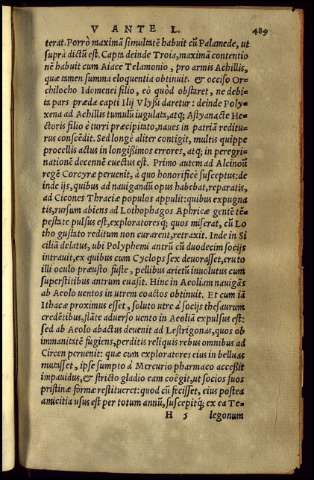 V ANTE L. 489
terat. Porrò maximã simultatẽ habuit cũ Palamede, ut
suprà dictũ est. Capta deinde Troia, maximã contentio
nẽ habuit cum Aiace Telamonio, pro armis Achillis,
quæ tamen summa eloquentia obtinuit. & occiso Or-
chilocho Idomenei filio, eò quòd obstaret, ne debi-
ta pars prædæ capti Ilij Vlyssi daretur: deinde Poly-
xena ad Achillis tumulũ iugulata, atq; Astyanacte He-
ctoris filio è turri præcipitato, naues in patriã reditu-
rus conscẽdit. Sed longè aliter contigit, multis quippe
procellis actus in longißimos errores, atq; in peregri-
nationẽ decennẽ euectus est. Primo autem ad Alcinoũ
regẽ Corcyræ peruenit, à quo honorificè susceptus: de
inde ijs, quibus ad nauigandũ opus habebat, reparatis,
ad Cicones Thraciæ populos appulit: quibus expugna
tis, rursum abiens ad Lothophagos Aphricæ gentẽ tẽ-
pestate pulsus est, exploratoresq; quos miserat, cũ Lo
tho gustato reditum non curarent, retraxit. Inde in Si
ciliã delatus, ubi Polyphemi antrũ cũ duodecim socijs
intrauit, ex quibus cum Cyclops sex deuorasset, eruto
illi oculo præusto fuste, pellibus arietũ inuolutus cum
superstitibus antrum euasit. Hinc in Aeoliam nauigãs
ab Aeolo uentos in utrem coactos obtinuit. Et cum iã
Ithacæ proximus esset, soluto utre à socijs thesaurum
credẽtibus, flãte aduerso uento in Aeoliã expulsus est:
sed ab Aeolo abactus deuenit ad Lestrigonas, quos ob
immanitatẽ fugiens, perditis reliquis rebus omnibus ad
Circen peruenit: quæ cum exploratores eius in belluas
mutasset, ipse sumpto à Mercurio pharmaco accessit
impauidus, & stricto gladio eam coëgit, ut socios suos
pristinæ formæ restitueret: quod cũ fecisset, eius postea
amicitia usus est per totum annũ, suscepitq; ex ea Te-
H 5 legonum